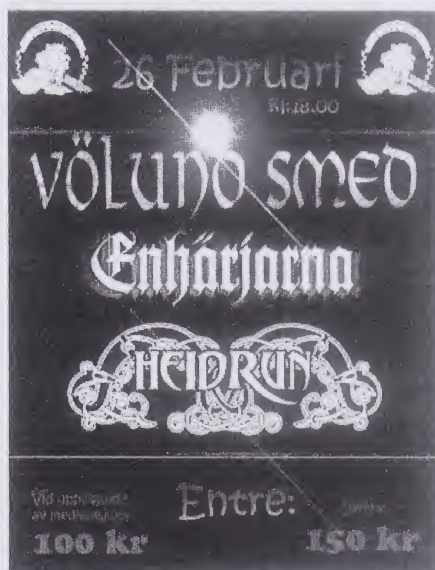 26 Februari
Kl:18.00
VÖLUND SMED
Enhärjarna
HEIDRUN
Entre:
Vid uppvisande
av medlemskort
100 kr
150 kr